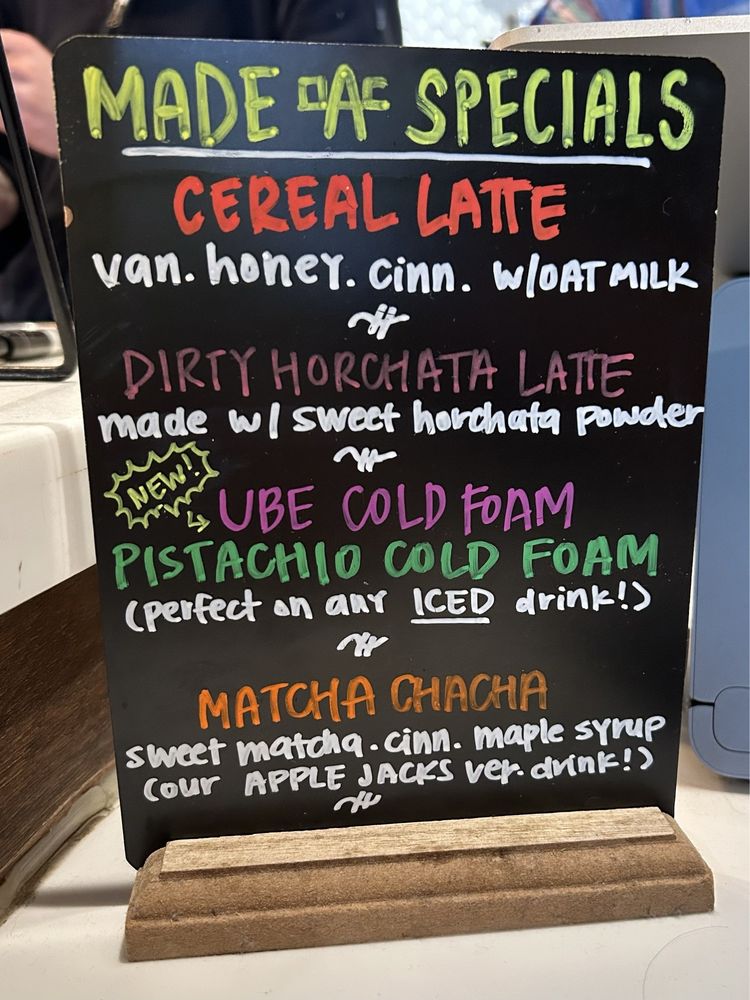 MADE AF SPECIALS
CEREAL LATTE
van. honey. cinn. w/OAT MILK
DIRTY HORCHATA LATTE
made w/ sweet horchata powder
NEW!
UBE COLD FOAM
PISTACHIO COLD FOAM
(perfect on any ICED drink!)
MATCHA CHACHA
sweet matcha. cinn. maple syrup
(our APPLE JACKS ver. drink!)